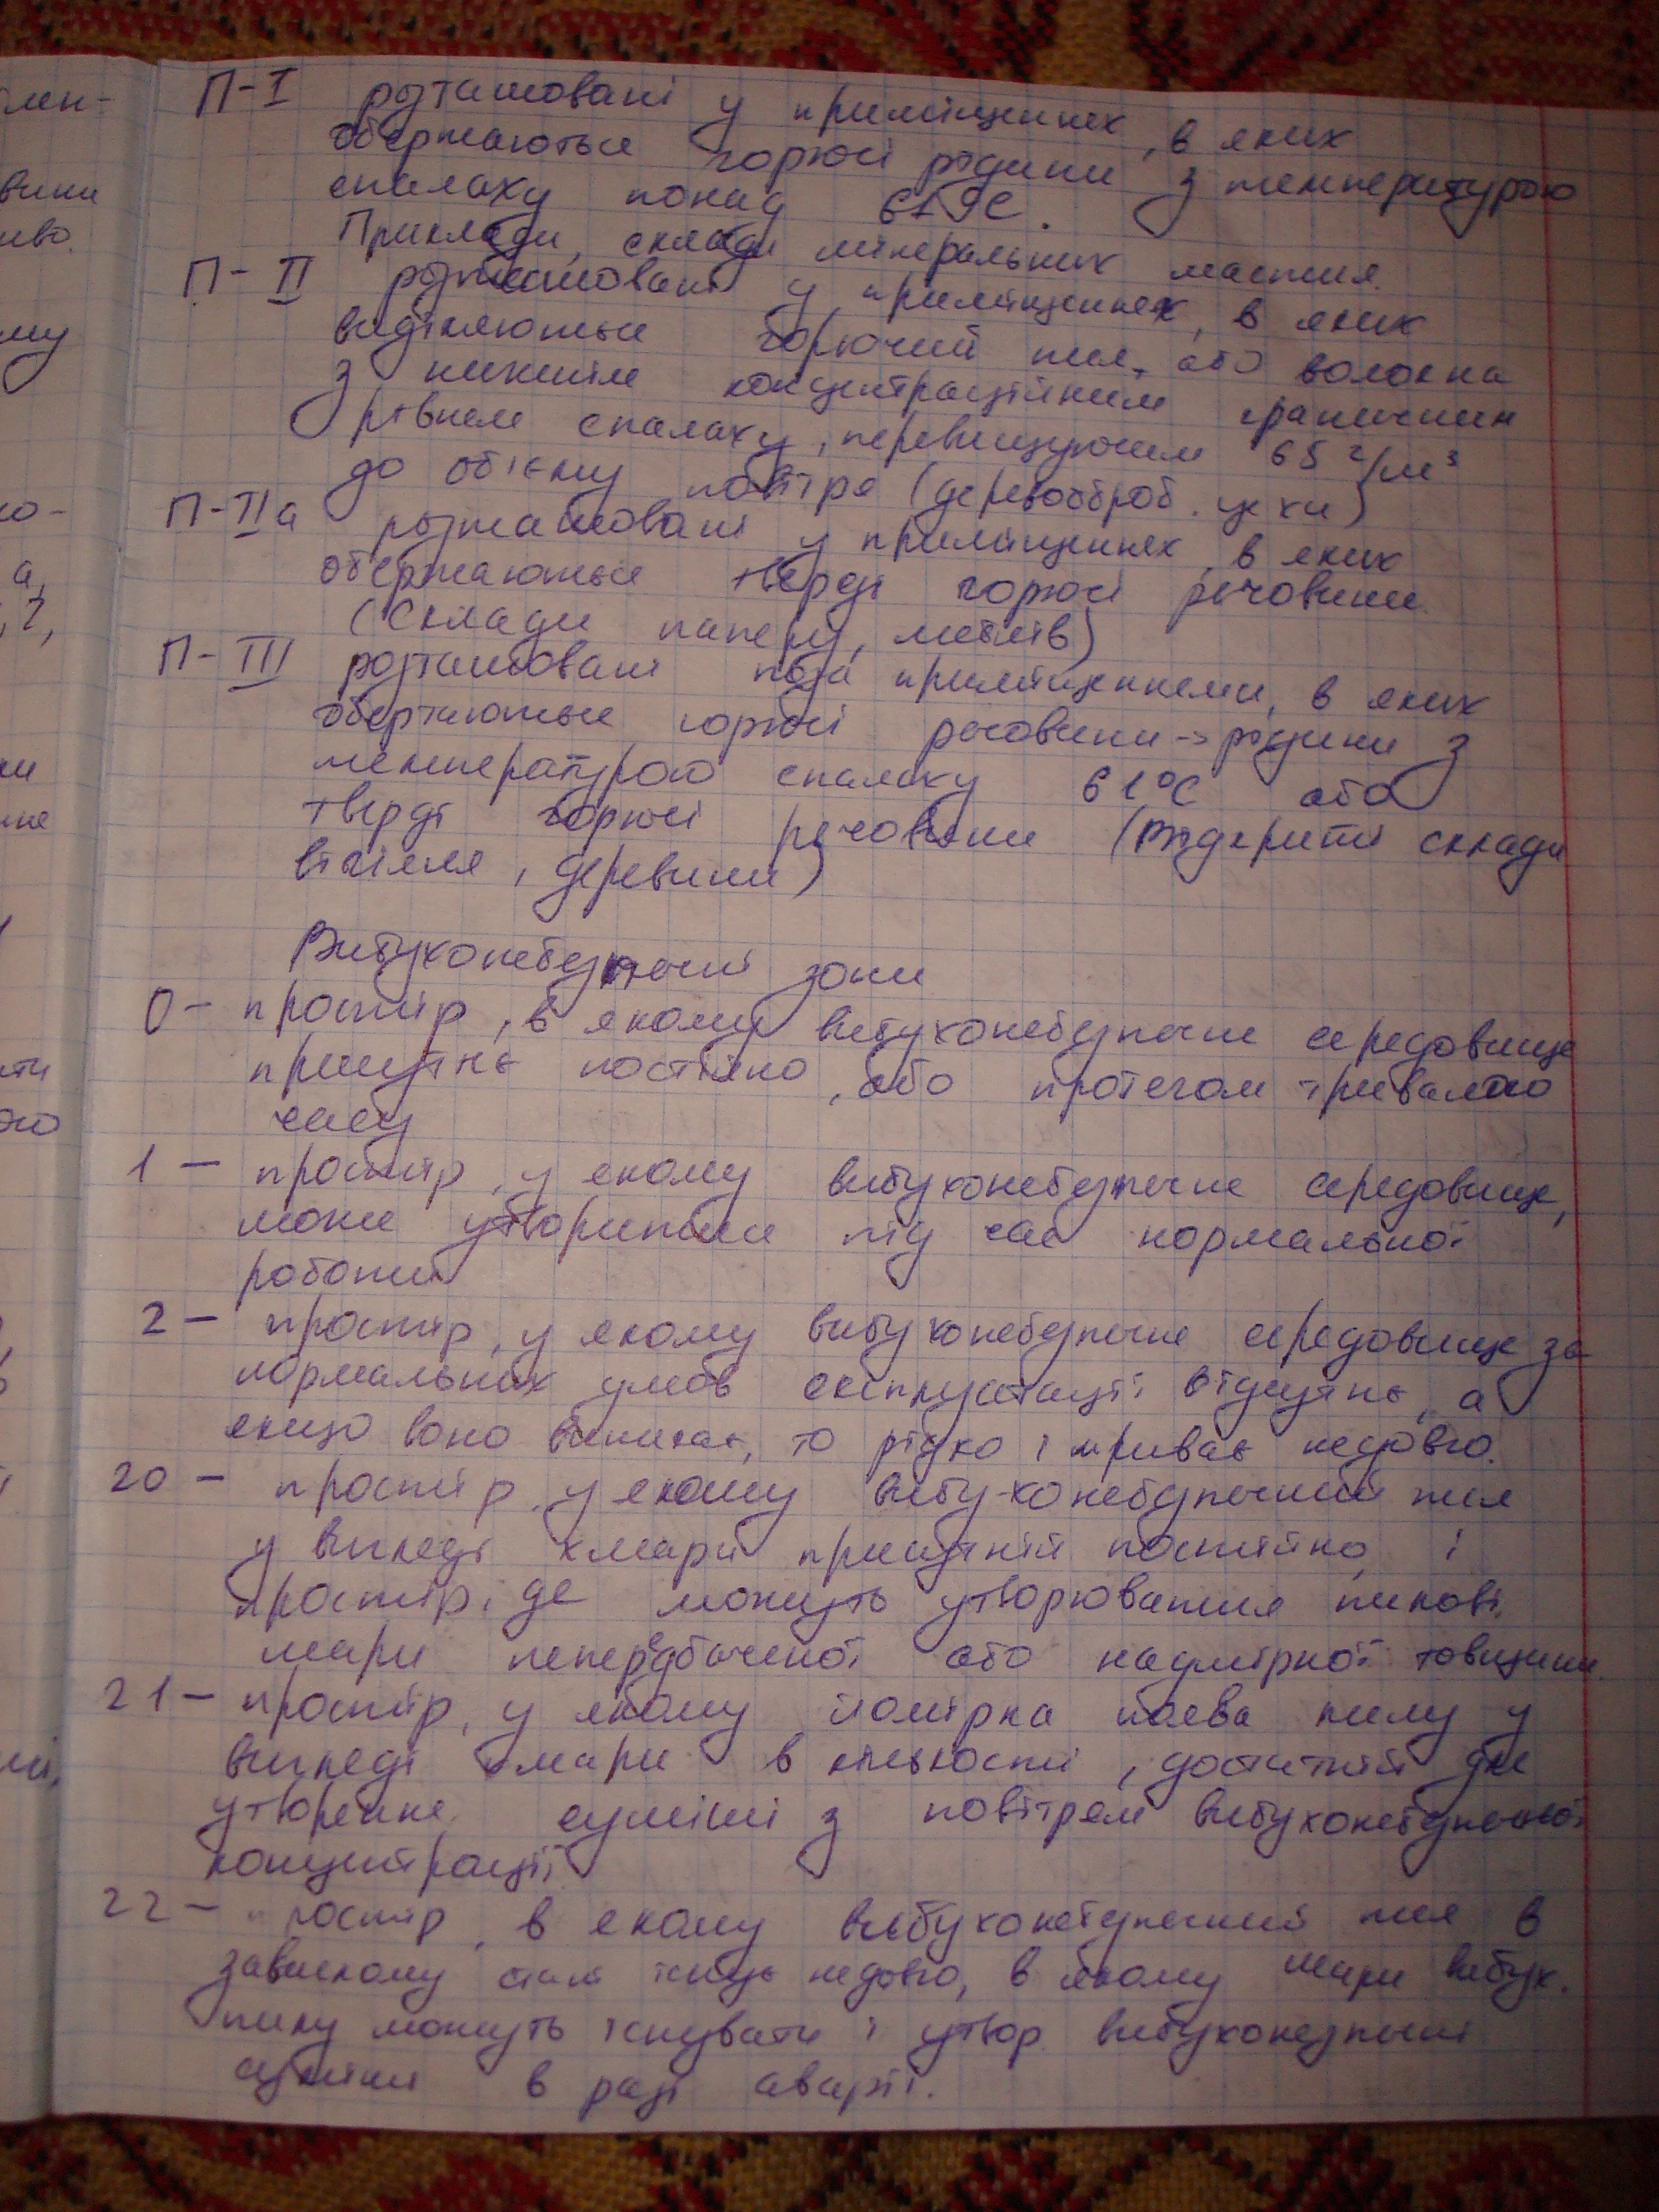 П-I розташовані у приміщеннях, в яких
обертаються горючі рідини з температурою
спалаху понад 61°С.
Приклади, склади мінеральних мастил.
П-II розташовані у приміщеннях, в яких
виділяються горючий пил, або волокна
з нижнім концентраційним граничним
рівнем спалаху, перевищуючим 65 г/м³
до об'єму повітря (деревооброб. цехи)
П-IIа розташовані у приміщеннях, в яких
обертаються тверді горючі речовини.
(Склади паперу, меблів)
П-III розташовані поза приміщеннями, в яких
обертаються горючі речовини -> рідини з
температурою спалаху 61°С або
тверді горючі речовини (відкриті склади
вугілля, деревини)
Вибухонебезпечні зони
0 - простір, в якому вибухонебезпечне середовище
присутнє постійно, або протягом тривалого
часу
1 - простір, у якому вибухонебезпечне середовище,
може утворитися під час нормальної
роботи
2 - простір, у якому вибухонебезпечне середовище за
нормальних умов експлуатації відсутнє, а
якщо воно виникає, то рідко і триває недовго.
20 - простір, у якому вибухонебезпечний пил
у вигляді хмари присутній постійно, і
простір, де можуть утворюватися пилові
шари непередбаченої або надмірної товщини.
21 - простір, у якому ймовірна поява пилу у
вигляді хмари в кількості, достатній для
утворення суміші з повітрям вибухонебезпечної
концентрації
22 - простір, в якому вибухонебезпечний пил в
завислому стані існує недовго, в якому шари вибух.
пилу можуть існувати і утвор. вибухонезпечні
суміші в разі аварії.